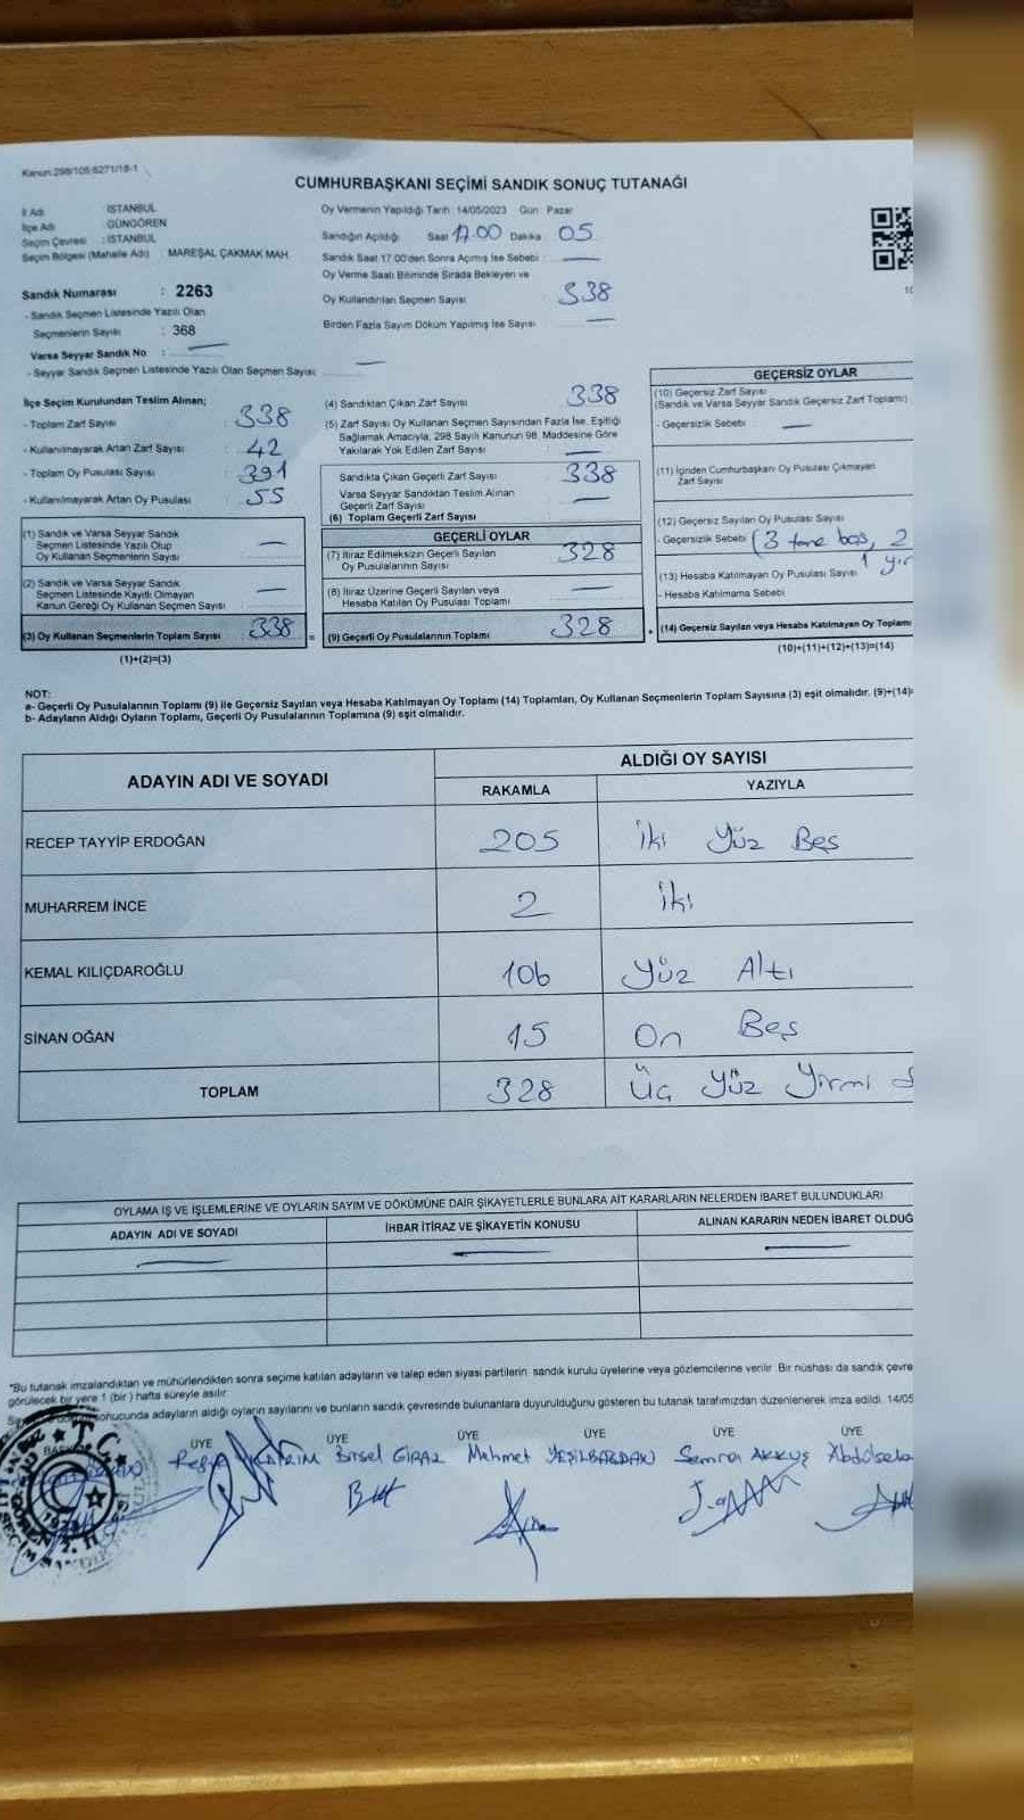 Kanun:298/105:6271/18-1
CUMHURBAŞKANI SEÇİMİ SANDIK SONUÇ TUTANAĞI
İl Adı : İSTANBUL
İlçe Adı : GÜNGÖREN
Seçim Çevresi : İSTANBUL
Seçim Bölgesi (Mahalle Adı) : MAREŞAL ÇAKMAK MAH.
Sandık Numarası : 2263
- Sandık Seçmen Listesinde Yazılı Olan
Seçmenlerin Sayısı : 368
Varsa Seyyar Sandık No : —
- Seyyar Sandık Seçmen Listesinde Yazılı Olan Seçmen Sayısı: —
Oy Vermenin Yapıldığı Tarih: 14/05/2023 Gün: Pazar
Sandığın Açıldığı Saat 17.00 Dakika 05
Sandık Saat 17.00'den Sonra Açımış İse Sebebi : —
Oy Verme Saati Bitiminde Sırada Bekleyen ve
Oy Kullandırılan Seçmen Sayısı 338
Birden Fazla Sayım Döküm Yapılmış İse Sayısı —
İlçe Seçim Kurulundan Teslim Alınan;
- Toplam Zarf Sayısı : 338
- Kullanılmayarak Artan Zarf Sayısı : 42
- Toplam Oy Pusulası Sayısı : 391
- Kullanılmayarak Artan Oy Pusulası : 55
(1) Sandık ve Varsa Seyyar Sandık
Seçmen Listesinde Yazılı Olup
Oy Kullanan Seçmenlerin Sayısı —
(2) Sandık ve Varsa Seyyar Sandık
Seçmen Listesinde Kayıtlı Olmayan
Kanun Gereği Oy Kullanan Seçmen Sayısı —
(3) Oy Kullanan Seçmenlerin Toplam Sayısı : 338 =
(1)+(2)=(3)
(4) Sandıktan Çıkan Zarf Sayısı 338
(5) Zarf Sayısı Oy Kullanan Seçmen Sayısından Fazla İse, Eşitliği
Sağlamak Amacıyla, 298 Sayılı Kanunun 98. Maddesine Göre
Yakılarak Yok Edilen Zarf Sayısı —
Sandıkta Çıkan Geçerli Zarf Sayısı 338
Varsa Seyyar Sandıktan Teslim Alınan
Geçerli Zarf Sayısı —
(6) Toplam Geçerli Zarf Sayısı
GEÇERLİ OYLAR
(7) İtiraz Edilmeksizin Geçerli Sayılan
Oy Pusulalarının Sayısı 328
(8) İtiraz Üzerine Geçerli Sayılan veya
Hesaba Katılan Oy Pusulası Toplamı —
(9) Geçerli Oy Pusulalarının Toplamı 328 +
GEÇERSİZ OYLAR
(10) Geçersiz Zarf Sayısı
(Sandık ve Varsa Seyyar Sandık Geçersiz Zarf Toplamı)
- Geçersizlik Sebebi —
(11) İçinden Cumhurbaşkanı Oy Pusulası Çıkmayan
Zarf Sayısı
(12) Geçersiz Sayılan Oy Pusulası Sayısı
- Geçersizlik Sebebi (3 tane boş, 2
1 yır
(13) Hesaba Katılmayan Oy Pusulası Sayısı
- Hesaba Katılmama Sebebi
(14) Geçersiz Sayılan veya Hesaba Katılmayan Oy Toplamı
(10)+(11)+(12)+(13)=(14)
NOT:
a- Geçerli Oy Pusulalarının Toplamı (9) ile Geçersiz Sayılan veya Hesaba Katılmayan Oy Toplamı (14) Toplamları, Oy Kullanan Seçmenlerin Toplam Sayısına (3) eşit olmalıdır. (9)+(14)=
b- Adayların Aldığı Oyların Toplamı, Geçerli Oy Pusulalarının Toplamına (9) eşit olmalıdır.
ADAYIN ADI VE SOYADI
ALDIĞI OY SAYISI
RAKAMLA YAZIYLA
RECEP TAYYİP ERDOĞAN 205 İki Yüz Beş
MUHARREM İNCE 2 İki
KEMAL KILIÇDAROĞLU 106 Yüz Altı
SİNAN OĞAN 15 On Beş
TOPLAM 328 Üç Yüz Yirmi
OYLAMA İŞ VE İŞLEMLERİNE VE OYLARIN SAYIM VE DÖKÜMÜNE DAİR ŞİKAYETLERLE BUNLARA AİT KARARLARIN NELERDEN İBARET BULUNDUKLARI
ADAYIN ADI VE SOYADI İHBAR İTİRAZ VE ŞİKAYETİN KONUSU ALINAN KARARIN NEDEN İBARET OLDUĞ
— — —
*Bu tutanak imzalandıktan ve mühürlendikten sonra seçime katılan adayların ve talep eden siyasi partilerin sandık kurulu üyelerine veya gözlemcilerine verilir. Bir nüshası da sandık çevre
görülecek bir yere 1 (bir) hafta süreyle asılır.
sonucunda adayların aldığı oyların sayılarını ve bunların sandık çevresinde bulunanlara duyurulduğunu gösteren bu tutanak tarafımızdan düzenlenerek imza edildi. 14/05
ÜYE ÜYE ÜYE ÜYE ÜYE
Birsel GİRAZ Mehmet YEŞİLBAĞDAN Semra AKKUŞ Abdülsela
T.C.